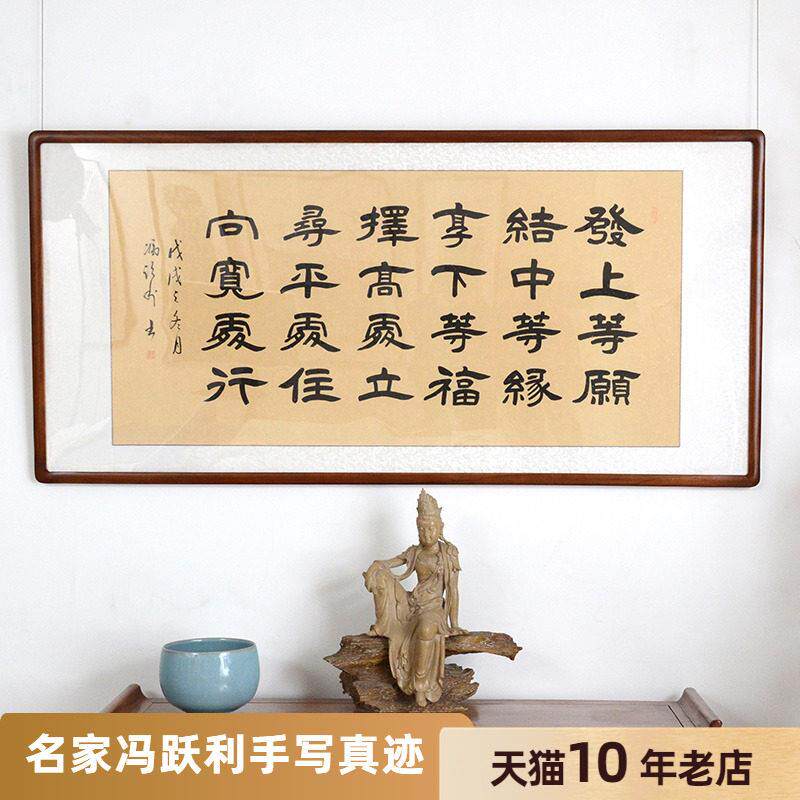 發上等願
結中等緣
享下等福
擇高處立
尋平處住
向寬處行
戊戌之冬月
冯跃利书
名家冯跃利手写真迹
天猫10年老店